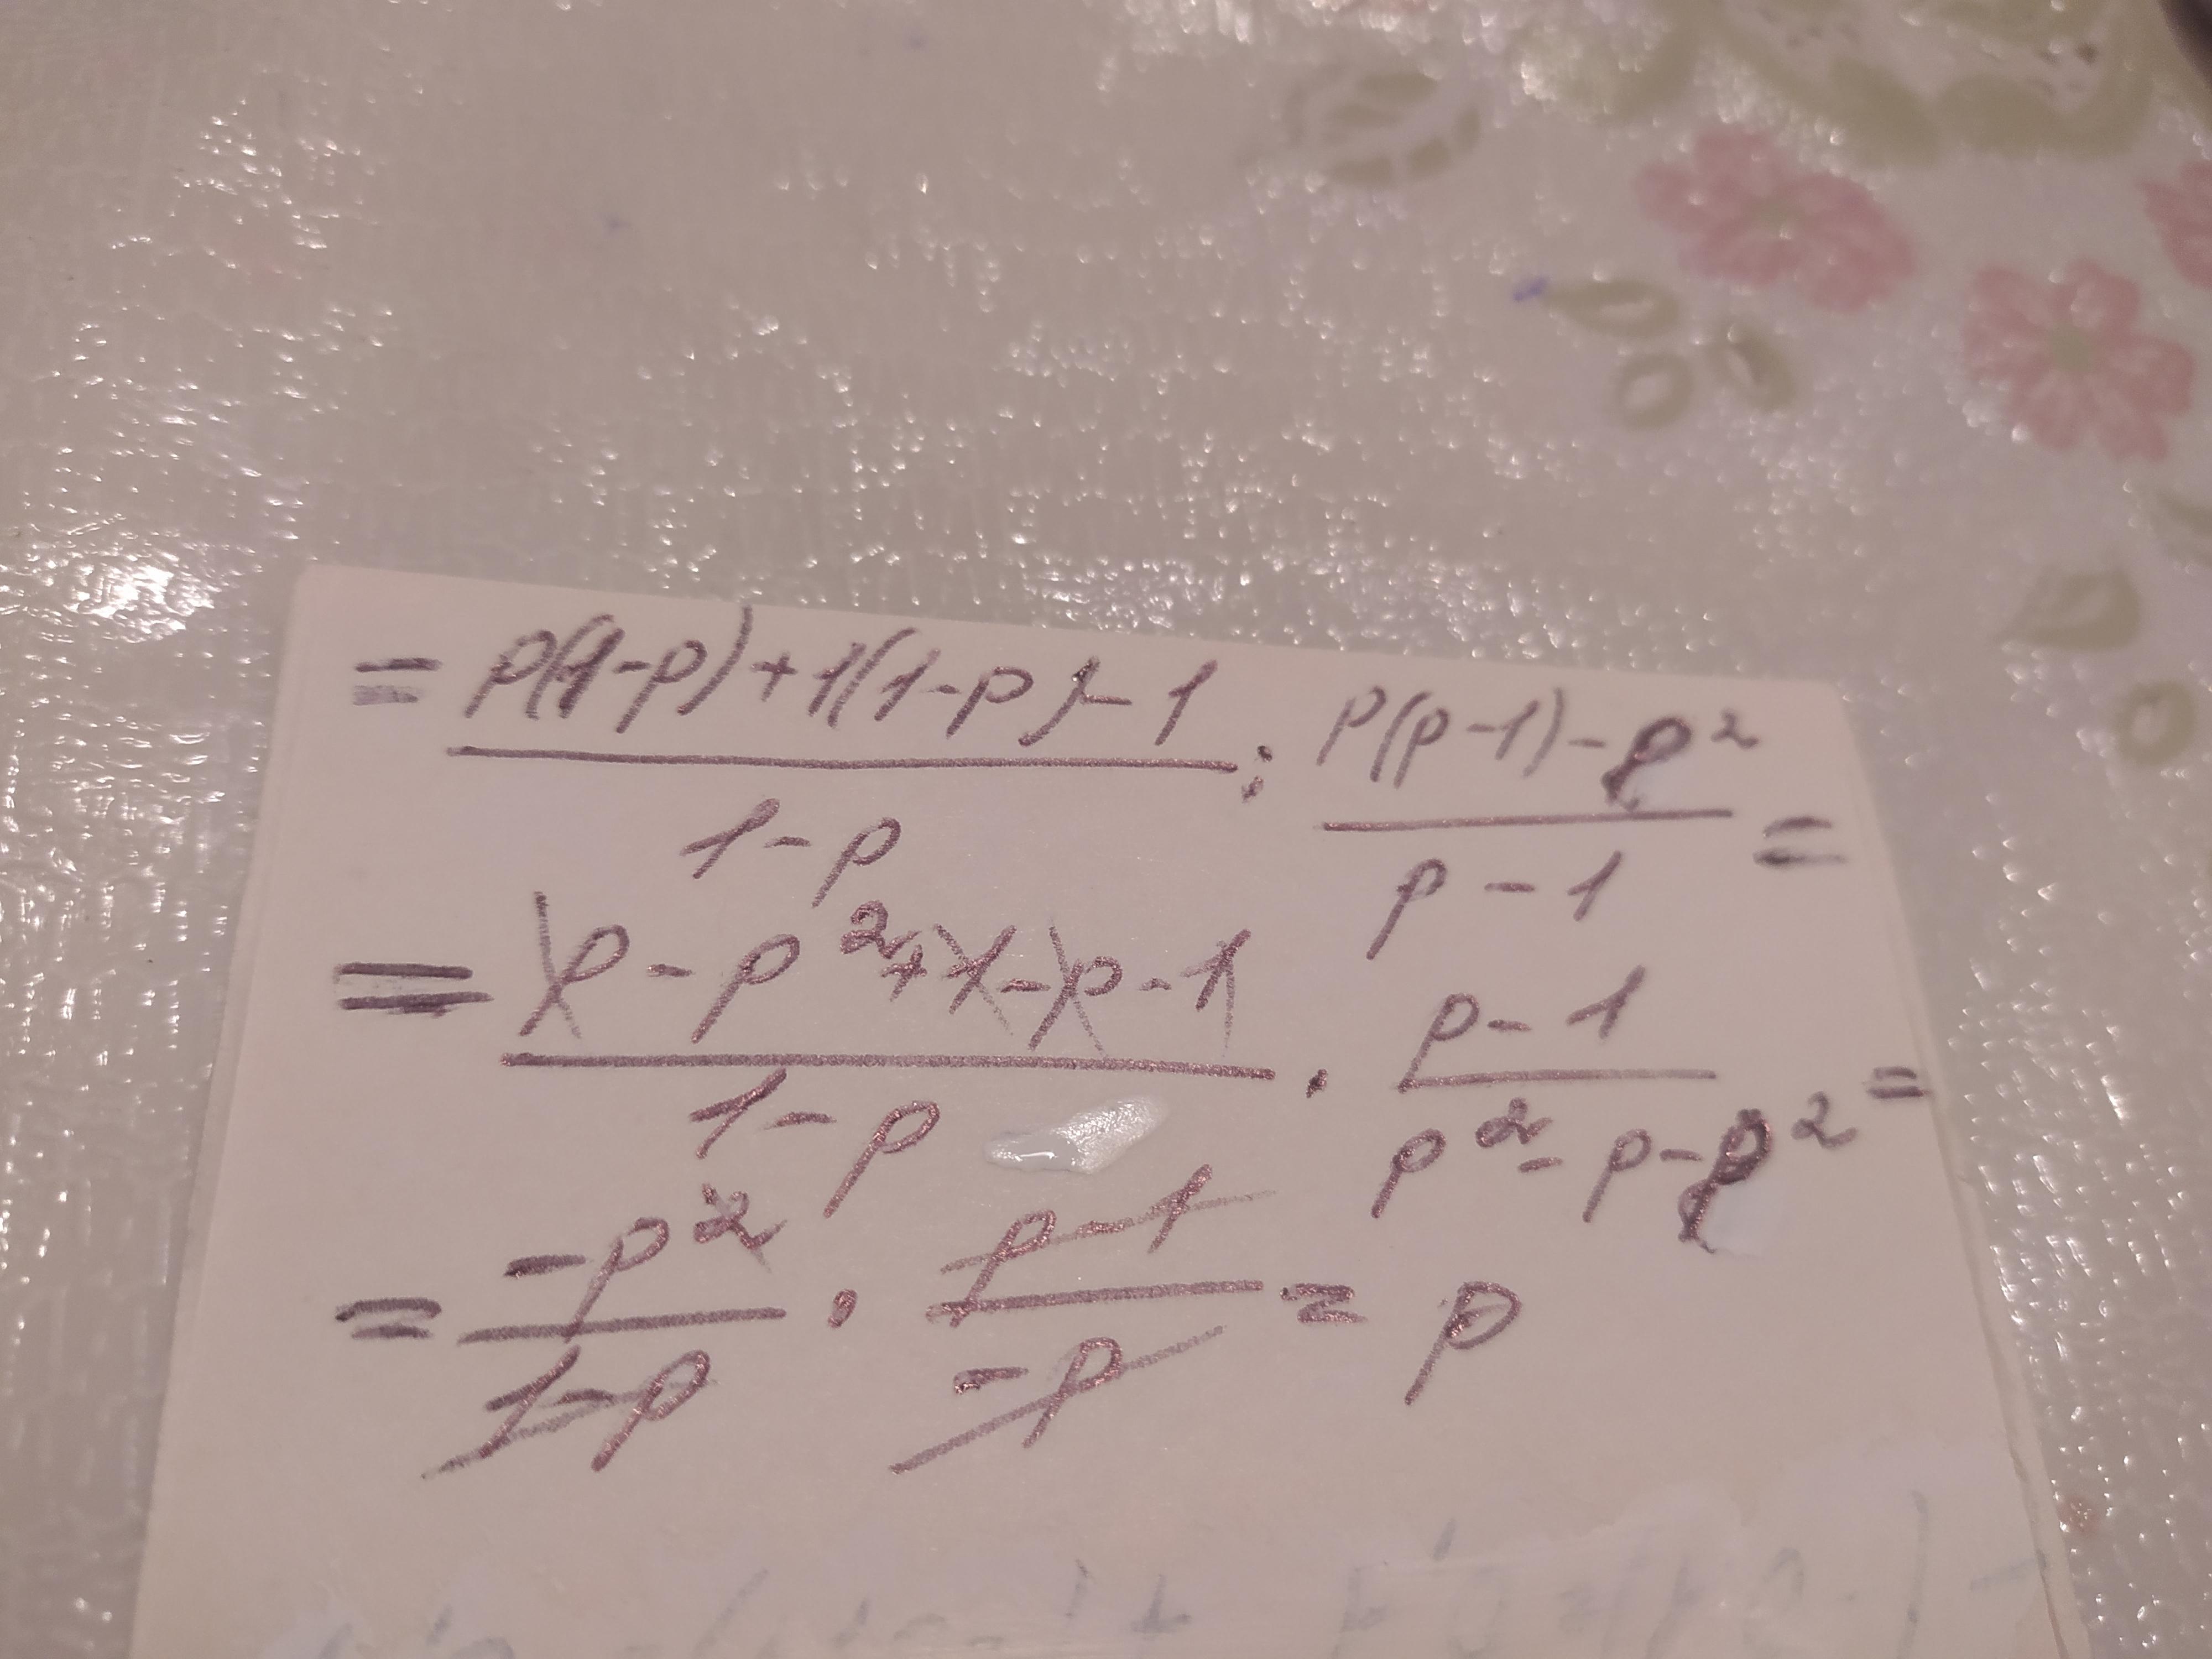 = p(1-p)+1(1-p)-1 / 1-p : p(p-1)-p² / p-1 =
= p-p²+1-p-1 / 1-p · p-1 / p²-p-p² =
= -p² / 1-p · p-1 / -p = p